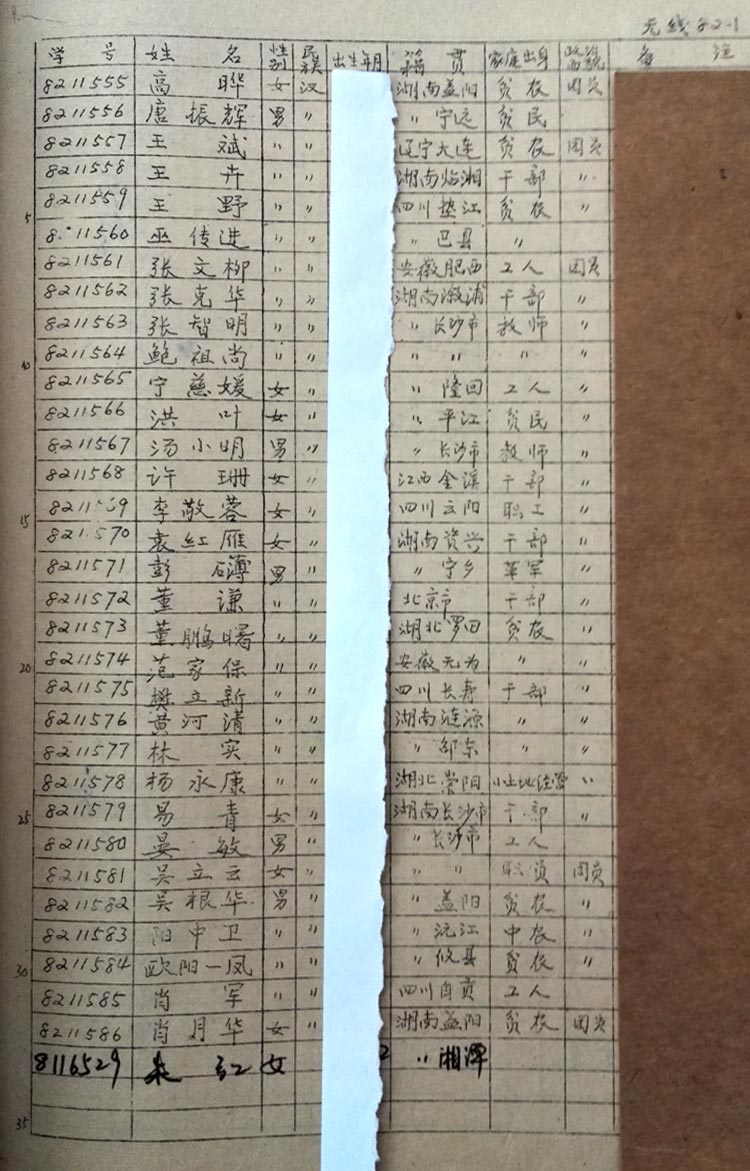 无线82-1
学号 姓名 性别 民族 出生年月 籍贯 家庭出身 政治面貌 备注
8211555 高晔 女 汉 湖南益阳 贫农 团员
8211556 唐振辉 男 〃 〃 宁远 贫民
8211557 王斌 〃 〃 辽宁大连 贫农 团员
8211558 王卉 〃 〃 湖南临湘 干部 〃
5 8211559 王野 〃 〃 四川垫江 贫农 〃
8211560 巫传进 〃 〃 〃 巴县 〃
8211561 张文柳 〃 〃 安徽肥西 工人 团员
8211562 张克华 〃 〃 湖南溆浦 干部 〃
8211563 张智明 〃 〃 〃 长沙市 教师 〃
10 8211564 鲍祖尚 〃 〃 〃 〃 〃 〃
8211565 宁慈媛 女 〃 〃 隆回 工人 〃
8211566 洪叶 女 〃 〃 平江 贫民 〃
8211567 汤小明 男 〃 〃 长沙市 教师 〃
8211568 许珊 女 〃 江西金溪 干部 〃
15 8211569 李敬蓉 女 〃 四川云阳 职工 〃
8211570 袁红雁 女 〃 湖南资兴 干部 〃
8211571 彭礴 男 〃 〃 宁乡 革军 〃
8211572 董谦 〃 〃 北京市 干部 〃
8211573 董鹏曙 〃 〃 湖北罗田 贫农 〃
20 8211574 范家保 〃 〃 安徽无为 〃 〃
8211575 樊立新 〃 〃 四川长寿 干部 〃
8211576 黄河清 〃 〃 湖南涟源 〃 〃
8211577 林实 〃 〃 〃 邵东 〃 〃
8211578 杨永康 〃 〃 湖北崇阳 小土地经营 〃
25 8211579 易青 女 〃 湖南长沙市 干部 〃
8211580 晏敏 男 〃 〃 长沙市 工人
8211581 吴立云 女 〃 〃 〃 职员 团员
8211582 吴根华 男 〃 〃 益阳 贫农 〃
8211583 阳中卫 〃 〃 〃 沅江 中农 〃
30 8211584 欧阳一凤 〃 〃 〃 攸县 贫农 〃
8211585 肖军 〃 〃 四川自贡 工人
8211586 肖月华 女 〃 湖南益阳 贫农 团员
8116529 红 女 2 〃 湘潭
35